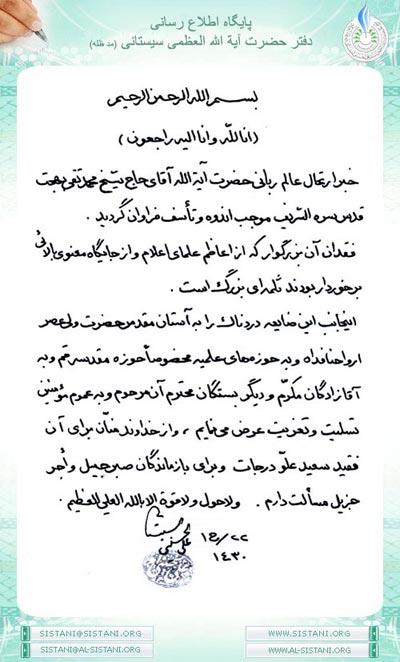 پایگاه اطلاع رسانی
دفتر حضرت آیة الله العظمی سیستانی (مد ظله)
بسم الله الرحمن الرحیم
(انا لله وانا الیه راجعون)
خبر ارتحال عالم ربانی حضرت آیة الله آقای حاج شیخ محمد تقی بهجت
قدس سره الشریف موجب اندوه و تأسف فراوان گردید .
فقدان آن بزرگوار که از اعاظم علمای اعلام و از جایگاه معنوی بالائی
برخوردار بودند ثلمه‌ای بزرگ است .
اینجانب این ضایعه دردناک را به آستان مقدس حضرت ولی عصر
ارواحنا فداه و به حوزه‌های علمیه مخصوصاً حوزه مقدسه قم و به
آقازادگان مکرّم و دیگر بستگان محترم آن مرحوم و به عموم مؤمنین
تسلیت و تعزیت عرض می‌نمایم ، و از خداوند منّان برای آن
فقید سعید علوّ درجات و برای بازماندگان صبر جمیل و أجر
جزیل مسألت دارم . ولا حول ولا قوة الا بالله العلی العظیم .
علی الحسینی
۲۲/ج۱
۱۴۳۰
SISTANI@SISTANI.ORG WWW.SISTANI.ORG
SISTANI@AL-SISTANI.ORG WWW.AL-SISTANI.ORG